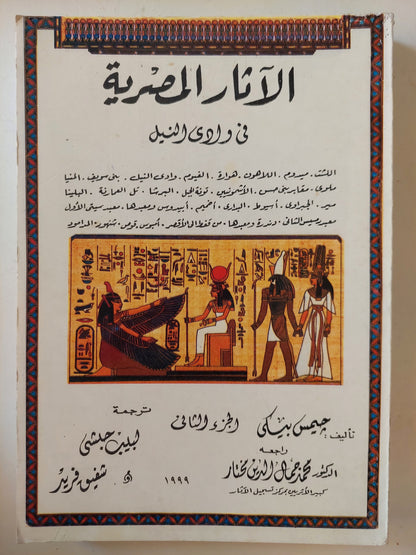 الآثار المصرية
فى وادى النيل
اللشت. ميدوم. اللاهون. هوارة. الفيوم. وادى النيل. بنى سويف. المنيا
ملوى. مقابر بنى حسن. الأشمونين. تونة الجبل. البرشا. تل العمارنة. البلينا
مير. الجبراوى. أسيوط. البدارى. أخميم. أبيدوس ومعبدها. معبد سيتى الأول
معبد رمسيس الثانى. دندرة ومعبدها. من قفط إلى الأقصر. أمبوس. قوص. شنهور. المدامود
تأليف: جيمس بيكى
الجزء الثانى
ترجمة
لبيب حبشى
شفيق فريد
راجعه
الدكتور محمد جمال الدين مختار
كبير الأثريين بمركز تسجيل الآثار
١٩٩٩